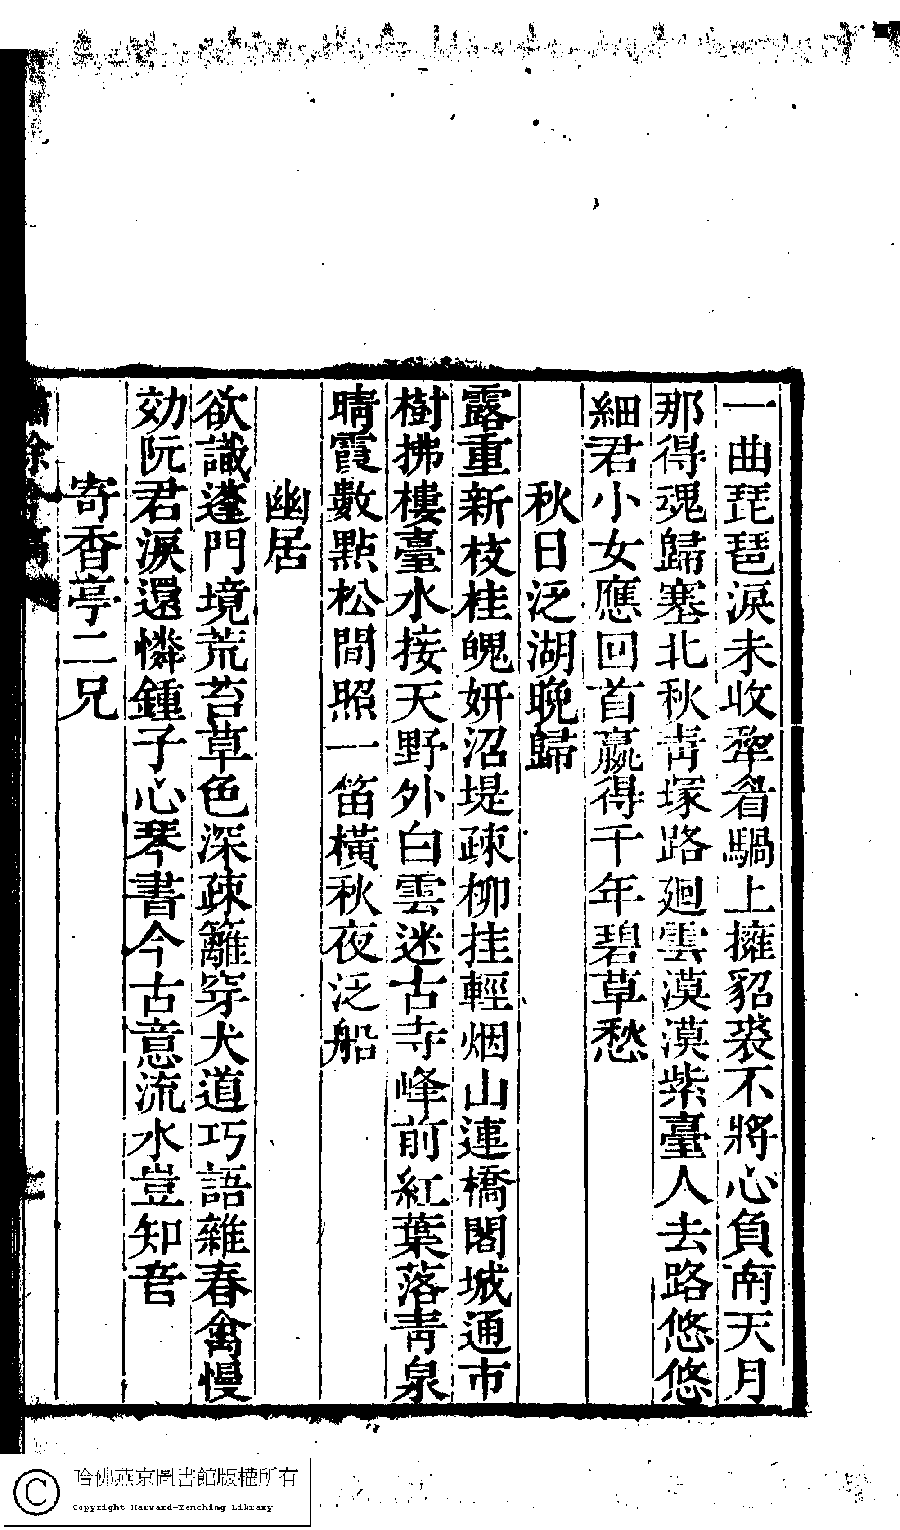 一曲琵琶淚未收牽着騧上擁貂裘不將心負南天月
那得魂歸塞北秋青塚路廻雲漠漠紫臺人去路悠悠
細君小女應回首贏得千年碧草愁
秋日泛湖晚歸
露重新枝桂魄妍沼堤疎柳挂輕烟山連橋閣城通市
樹拂樓臺水接天野外白雲迷古寺峰前紅葉落青泉
晴霞數點松間照一笛橫秋夜泛船
幽居
欲識蓬門境荒苔草色深疎籬穿犬道巧語雜春禽慢
効阮君淚還憐鍾子心琴書今古意流水豈知音
寄香亭二兄
哈佛燕京圖書館版權所有
Copyright Harvard-Yenching Library